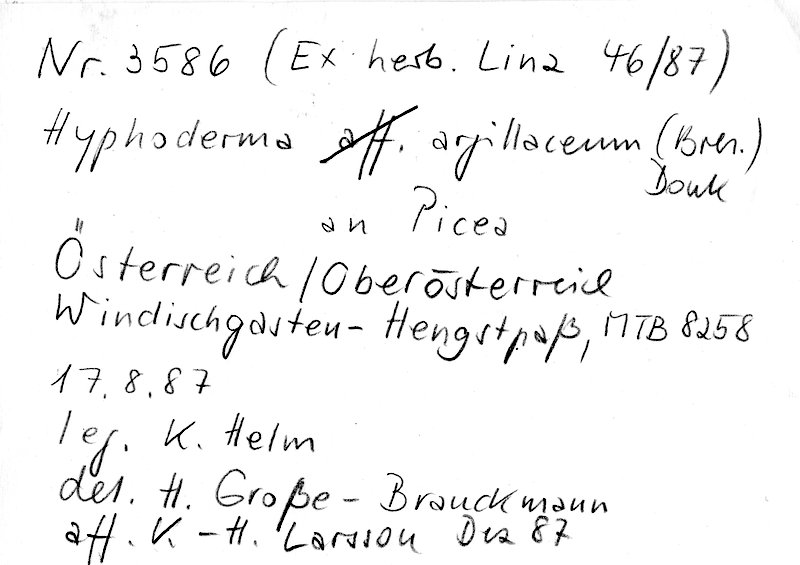 Nr. 3586 (Ex herb. Linz 46/87)
Hyphoderma aff. argillaceum (Bres.)
Donk
an Picea
Österreich/Oberösterreich
Windischgarsten-Hengstpaß, MTB 8258
17.8.87
leg. K. Helm
det. H. Große-Brauckmann
aff. K-H. Larsson Dez 87